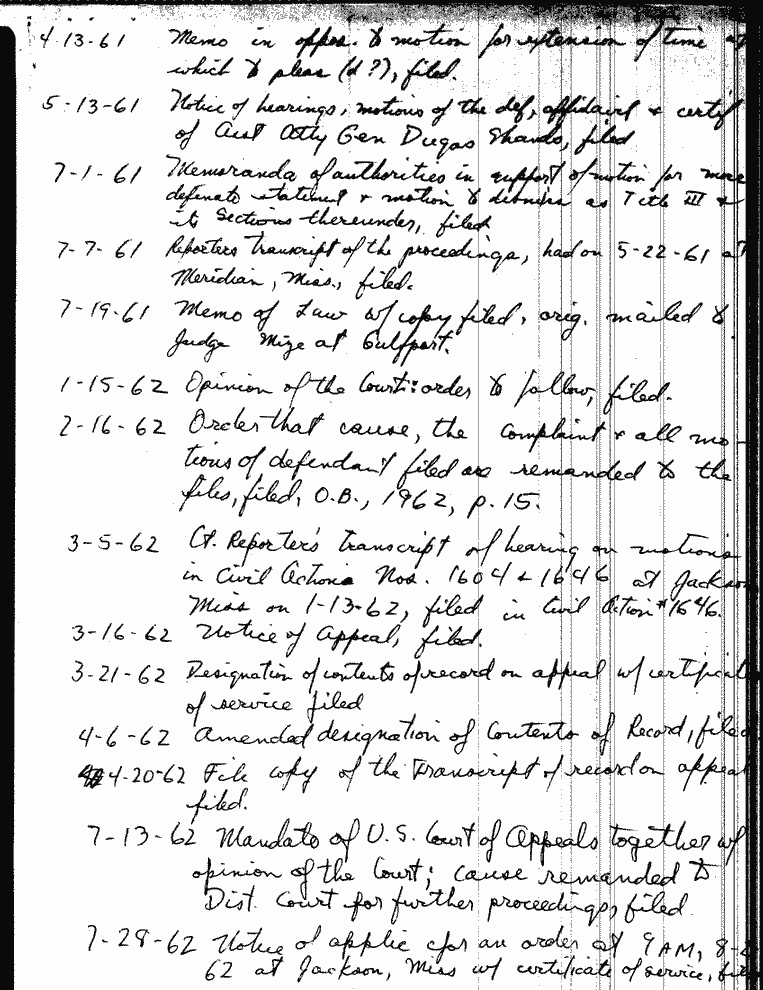 4-13-61 Memo in oppos. to motion for extension of time at
which to pleas (d?), filed.
5-13-61 Notice of hearings, motions of the def, affidavit & certif
of Asst Atty Gen Dugas Shands, filed
7-1-61 Memoranda of authorities in support of motion for more
definate statement & motion to dismiss as Title III &
its Sections thereunder, filed
7-7-61 Reporters transcript of the proceedings, had on 5-22-61 at
Meridian, Miss., filed.
7-19-61 Memo of Law w/ copy filed, orig. mailed to
Judge Mize at Gulfport.
1-15-62 Opinion of the Court: order to follow, filed.
2-16-62 Order that cause, the complaint & all mo-
tions of defendant filed are remanded to the
files, filed, O.B., 1962, p. 15.
3-5-62 Ct. Reporter's transcript of hearing on motions
in Civil Actions Nos. 1604 & 1646 at Jackson
Miss on 1-13-62, filed in Civil Action #1646.
3-16-62 Notice of Appeal, filed.
3-21-62 Designation of contents of record on appeal w/ certificate
of service filed
4-6-62 Amended designation of Contents of Record, filed
4-20-62 File copy of the Transcript of record on appeal
filed.
7-13-62 Mandate of U.S. Court of Appeals together w/
opinion of the Court; cause remanded to
Dist. Court for further proceedings, filed
7-28-62 Notice of applic for an order at 9 AM, 8-2
62 at Jackson, Miss w/ certificate of service, filed